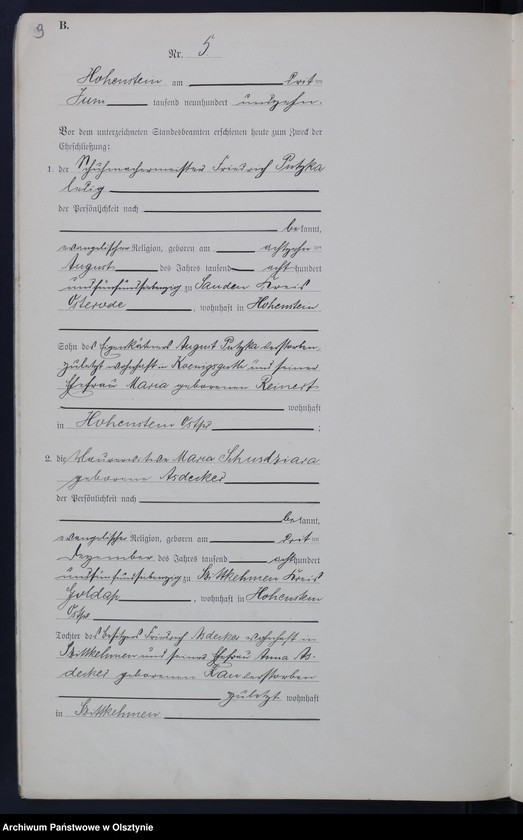 9
B.
Nr. 5
Hohenstein am drit ten
Juni tausend neunhundert undzehn.
Vor dem unterzeichneten Standesbeamten erschienen heute zum Zweck der
Eheschließung:
1. der Schuhmachermeister Friedrich Putzka
ledig
der Persönlichkeit nach
bekannt,
evangelischer Religion, geboren am achtzehn ten
August des Jahres tausend acht hundert
undfünfundsiebenzig zu Sauden Kreis
Osterode, wohnhaft in Hohenstein
Sohn des Eigenkätners August Putzka verstorben,
zuletzt wohnhaft in Koenigsgut und seiner
Ehefrau Maria geborenen Reinert
wohnhaft
in Hohenstein Ostpr ;
2. die Maurerwitwe Maria
geborene Asdecker
der Persönlichkeit nach
bekannt,
evangelischer Religion, geboren am drit ten
Dezember des Jahres tausend acht hundert
undfünfundsiebenzig zu Szittkehmen Kreis
Goldap, wohnhaft in Hohenstein
Ostpr
Tochter des Besitzers Friedrich Asdecker wohnhaft in
Szittkehmen und seiner Ehefrau Anna As-
decker geborenen verstorben
zuletzt wohnhaft
in Szittkehmen
Archiwum Państwowe w Olsztynie